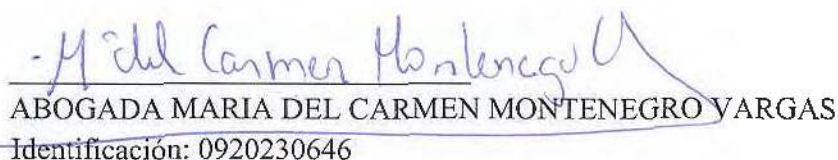 Ma del Carmen Montenegro V
ABOGADA MARIA DEL CARMEN MONTENEGRO VARGAS
Identificación: 0920230646